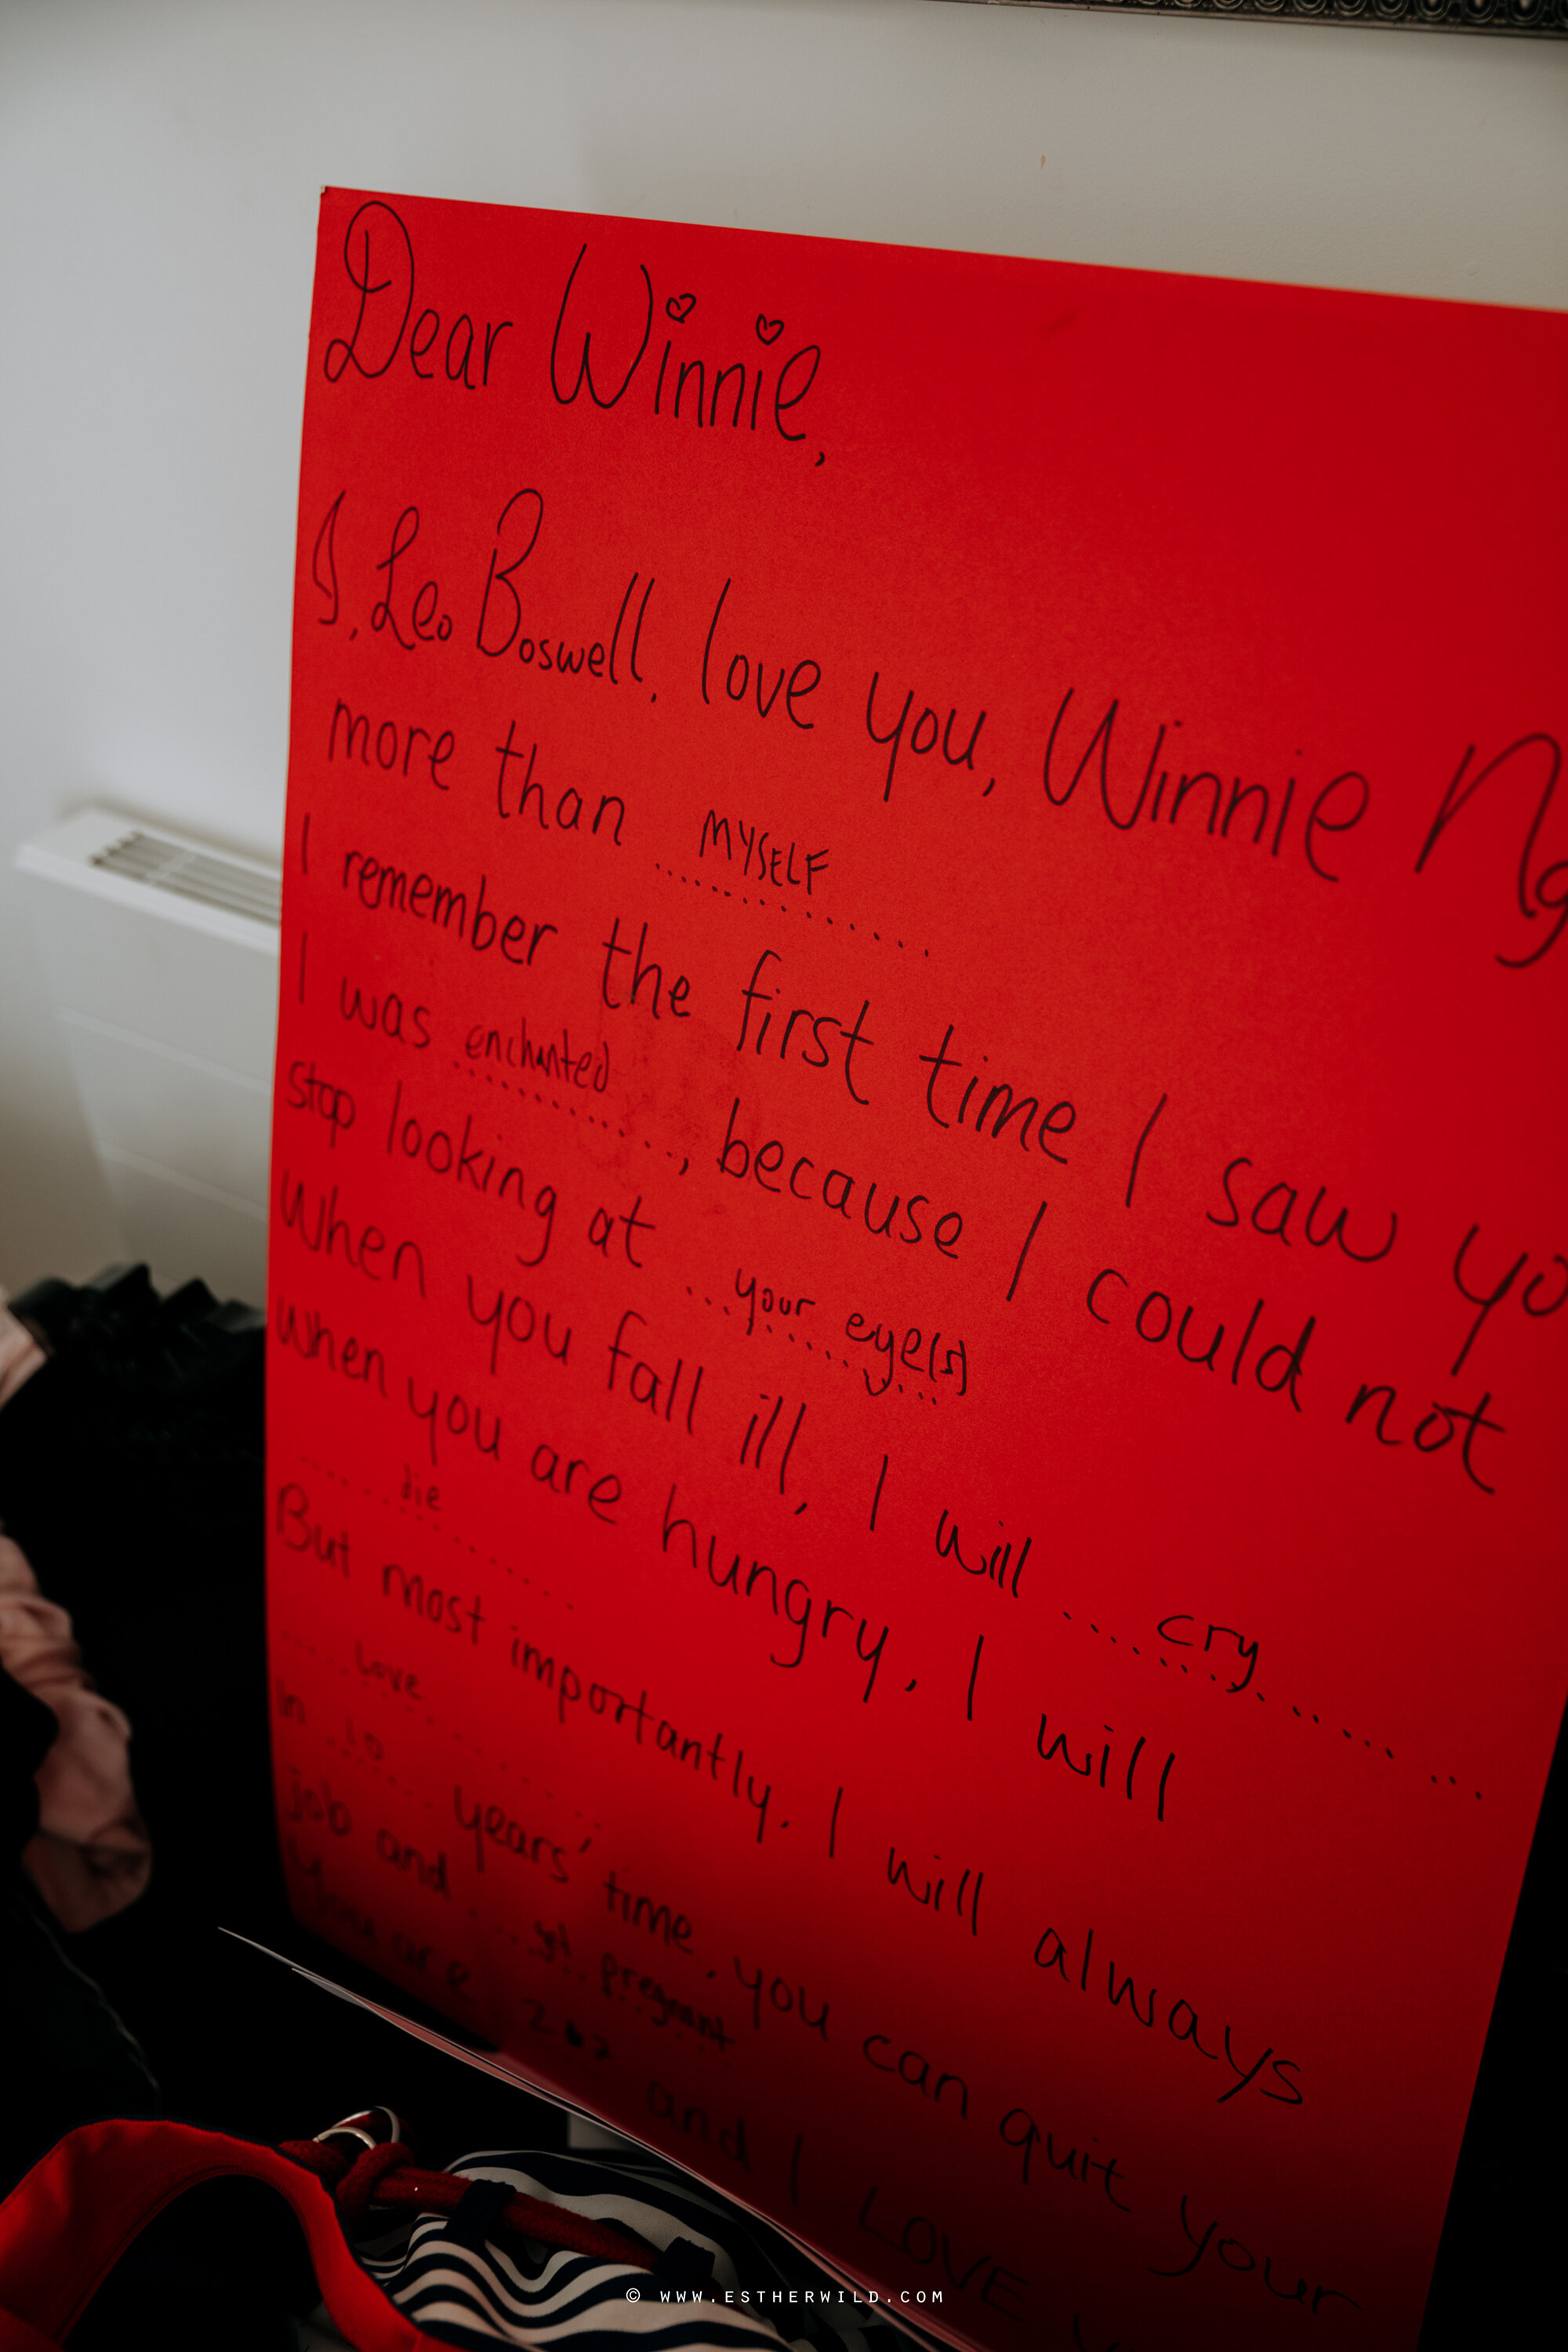 Dear Winnie,
I, Leo Boswell, love you, Winnie Ng
more than MYSELF
I remember the first time I saw yo
I was enchanted, because I could not
stop looking at your eye(s)
When you fall ill, I will cry
When you are hungry, I will
die
But most importantly, I will always
Love
In 10 years' time, you can quit your
job and pregnant
You are and I LOVE
© WWW.ESTHERWILD.COM